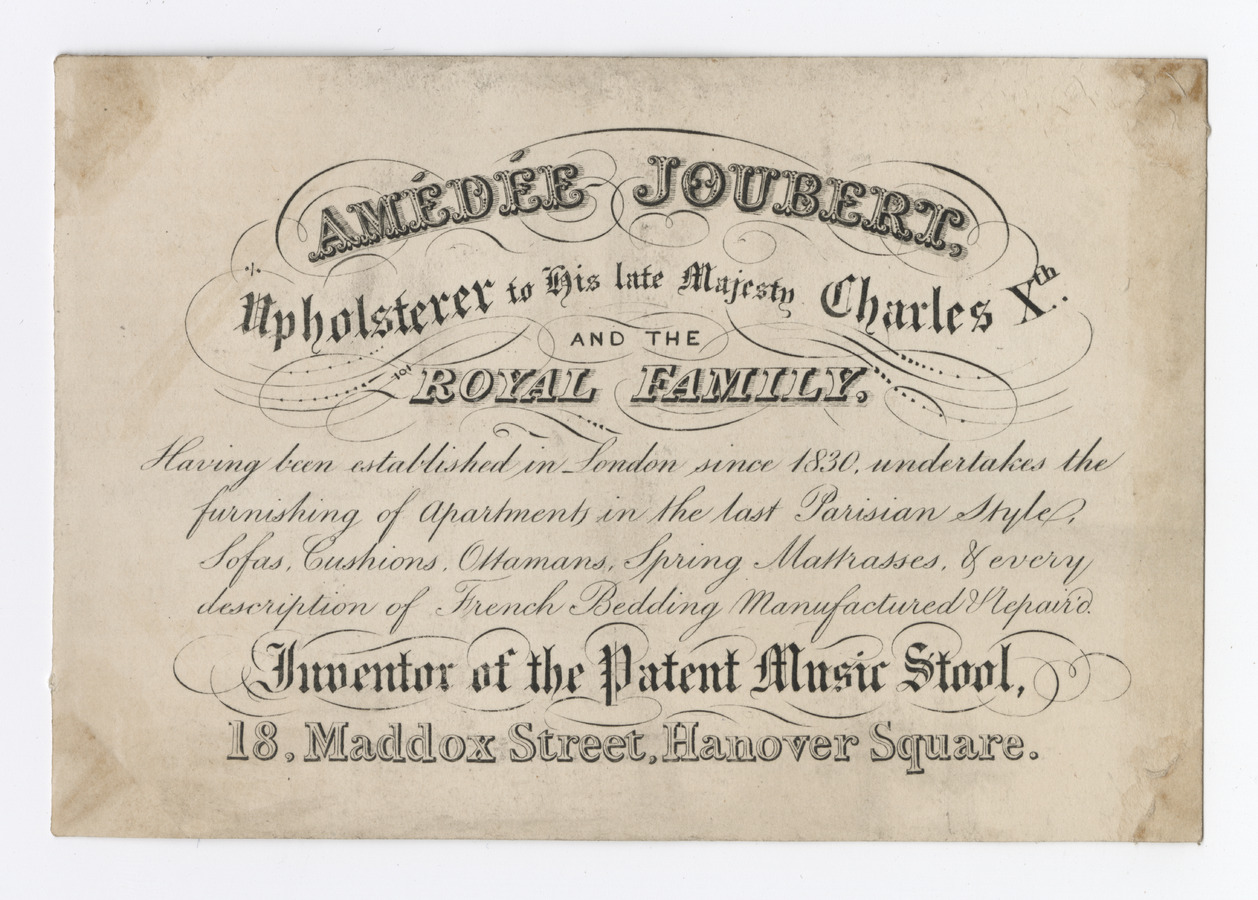 AMÉDÉE JOUBERT,
Upholsterer to His late Majesty Charles Xth.
AND THE
ROYAL FAMILY.
Having been established in London since 1830, undertakes the
furnishing of Apartments in the last Parisian Style,
Sofas, Cushions, Ottamans, Spring Mattrasses, & every
description of French Bedding Manufactured & Repair'd.
Inventor of the Patent Music Stool,
18, Maddox Street, Hanover Square.